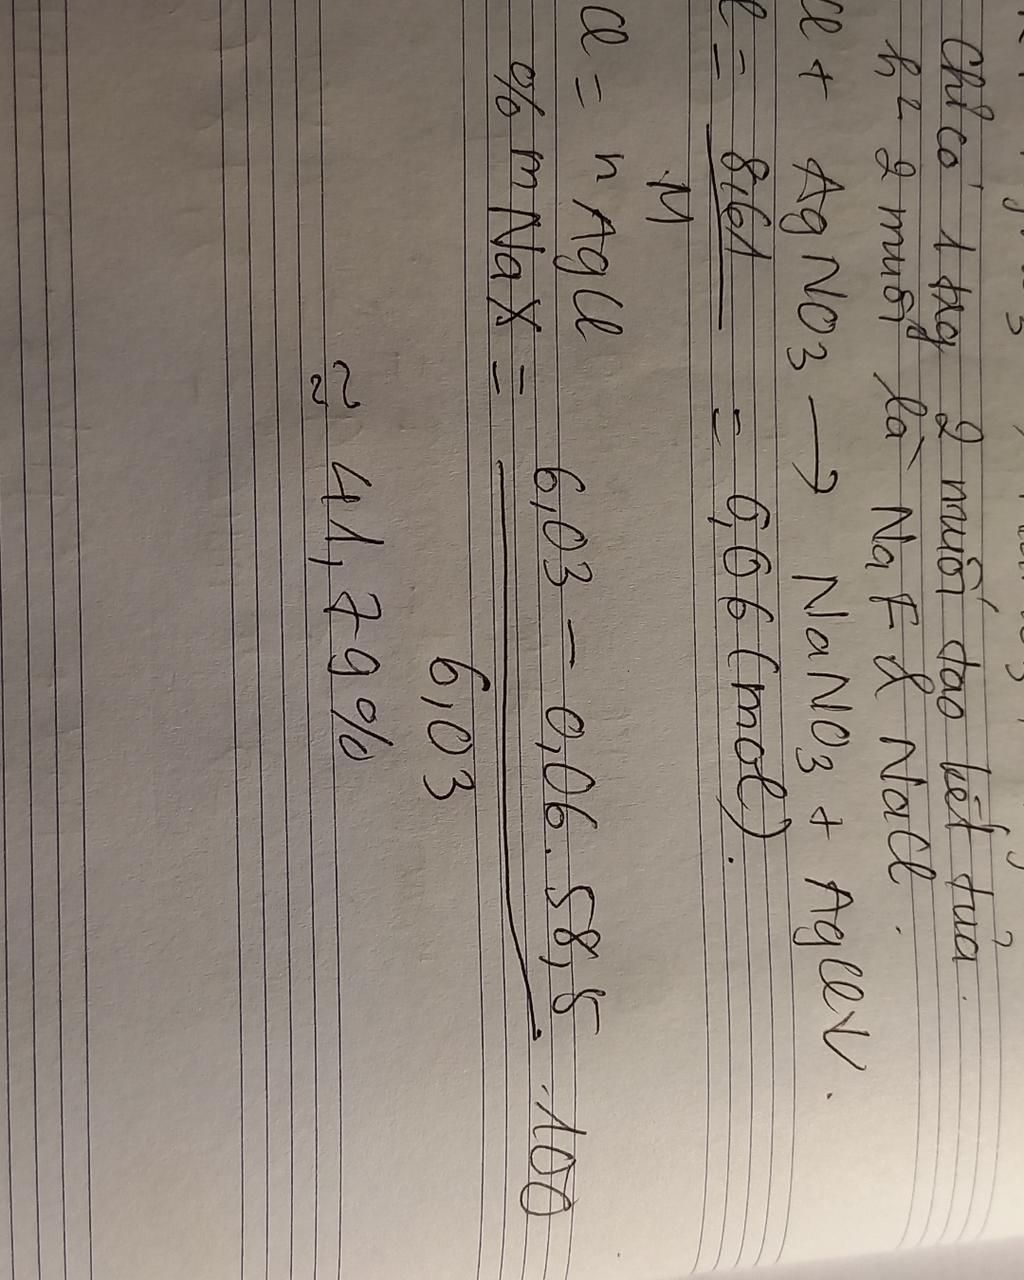 Chỉ có 1 trg 2 muối tạo kết tủa.
h² 2 muối là NaF & NaCl.
Cl + AgNO3 → NaNO3 + AgCl↓.
l = 8,61 = 0,06 (mol).
M
Cl = n AgCl
% m NaX = 6,03 - 0,06.58,5 .100
6,03
≈ 41,79%